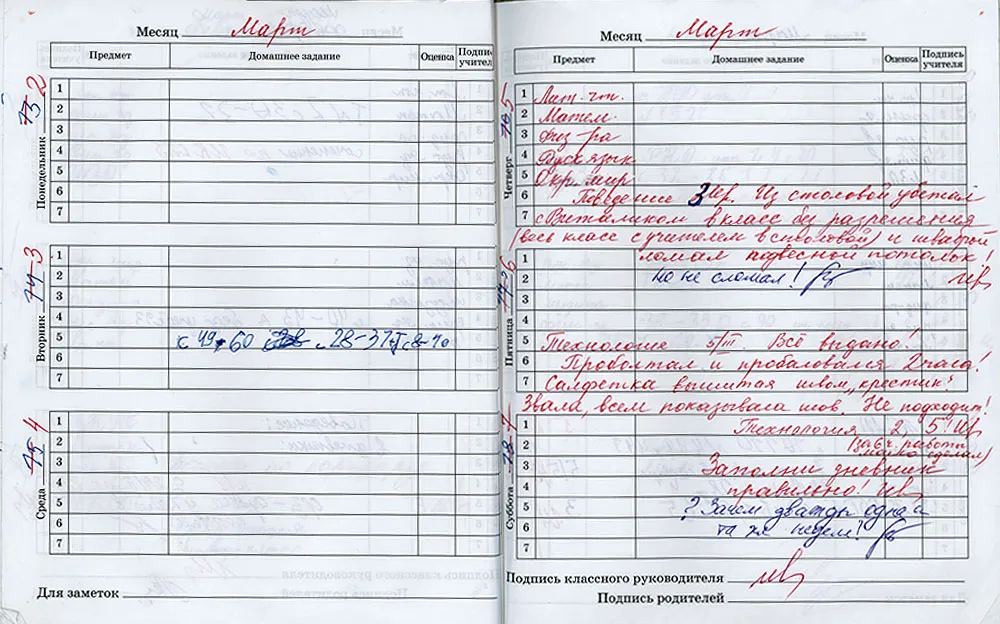 Месяц Март
Предмет Домашнее задание Оценка Подпись учителя
Понедельник 2
1
2
3
4
5
6
7
Вторник 3
1
2
3
4
5 с 49, 60 с. 28-37
6
7
Среда 4
1
2
3
4
5
6
7
Для заметок
Месяц Март
Предмет Домашнее задание Оценка Подпись учителя
Четверг 5
1 Лит. чт.
2 Матем.
3 Физ-ра
4 Русск язык
5 Окр. мир.
6 Поведение 3 Из столовой убежал
7 с Виталиком в класс без разрешения
(весь класс с учителем в столовой) и шваброй
Пятница 6
1 ломал подвесной потолок!
2 но не сломал!
3
4
5 Технология 5/III. Всё выдано!
6 Проболтал и пробаловался 2 часа!
7 Салфетка вышитая швом „крестик".
Звала, всем показывала шов. Не подходит!
Суббота 7
1 Технология 2, 5!
2 (за 6 ч. работы мало сделал)
3 Заполни дневник
4 правильно!
5 ? Зачем дважды одна и
6 та же неделя?
7
Подпись классного руководителя
Подпись родителей